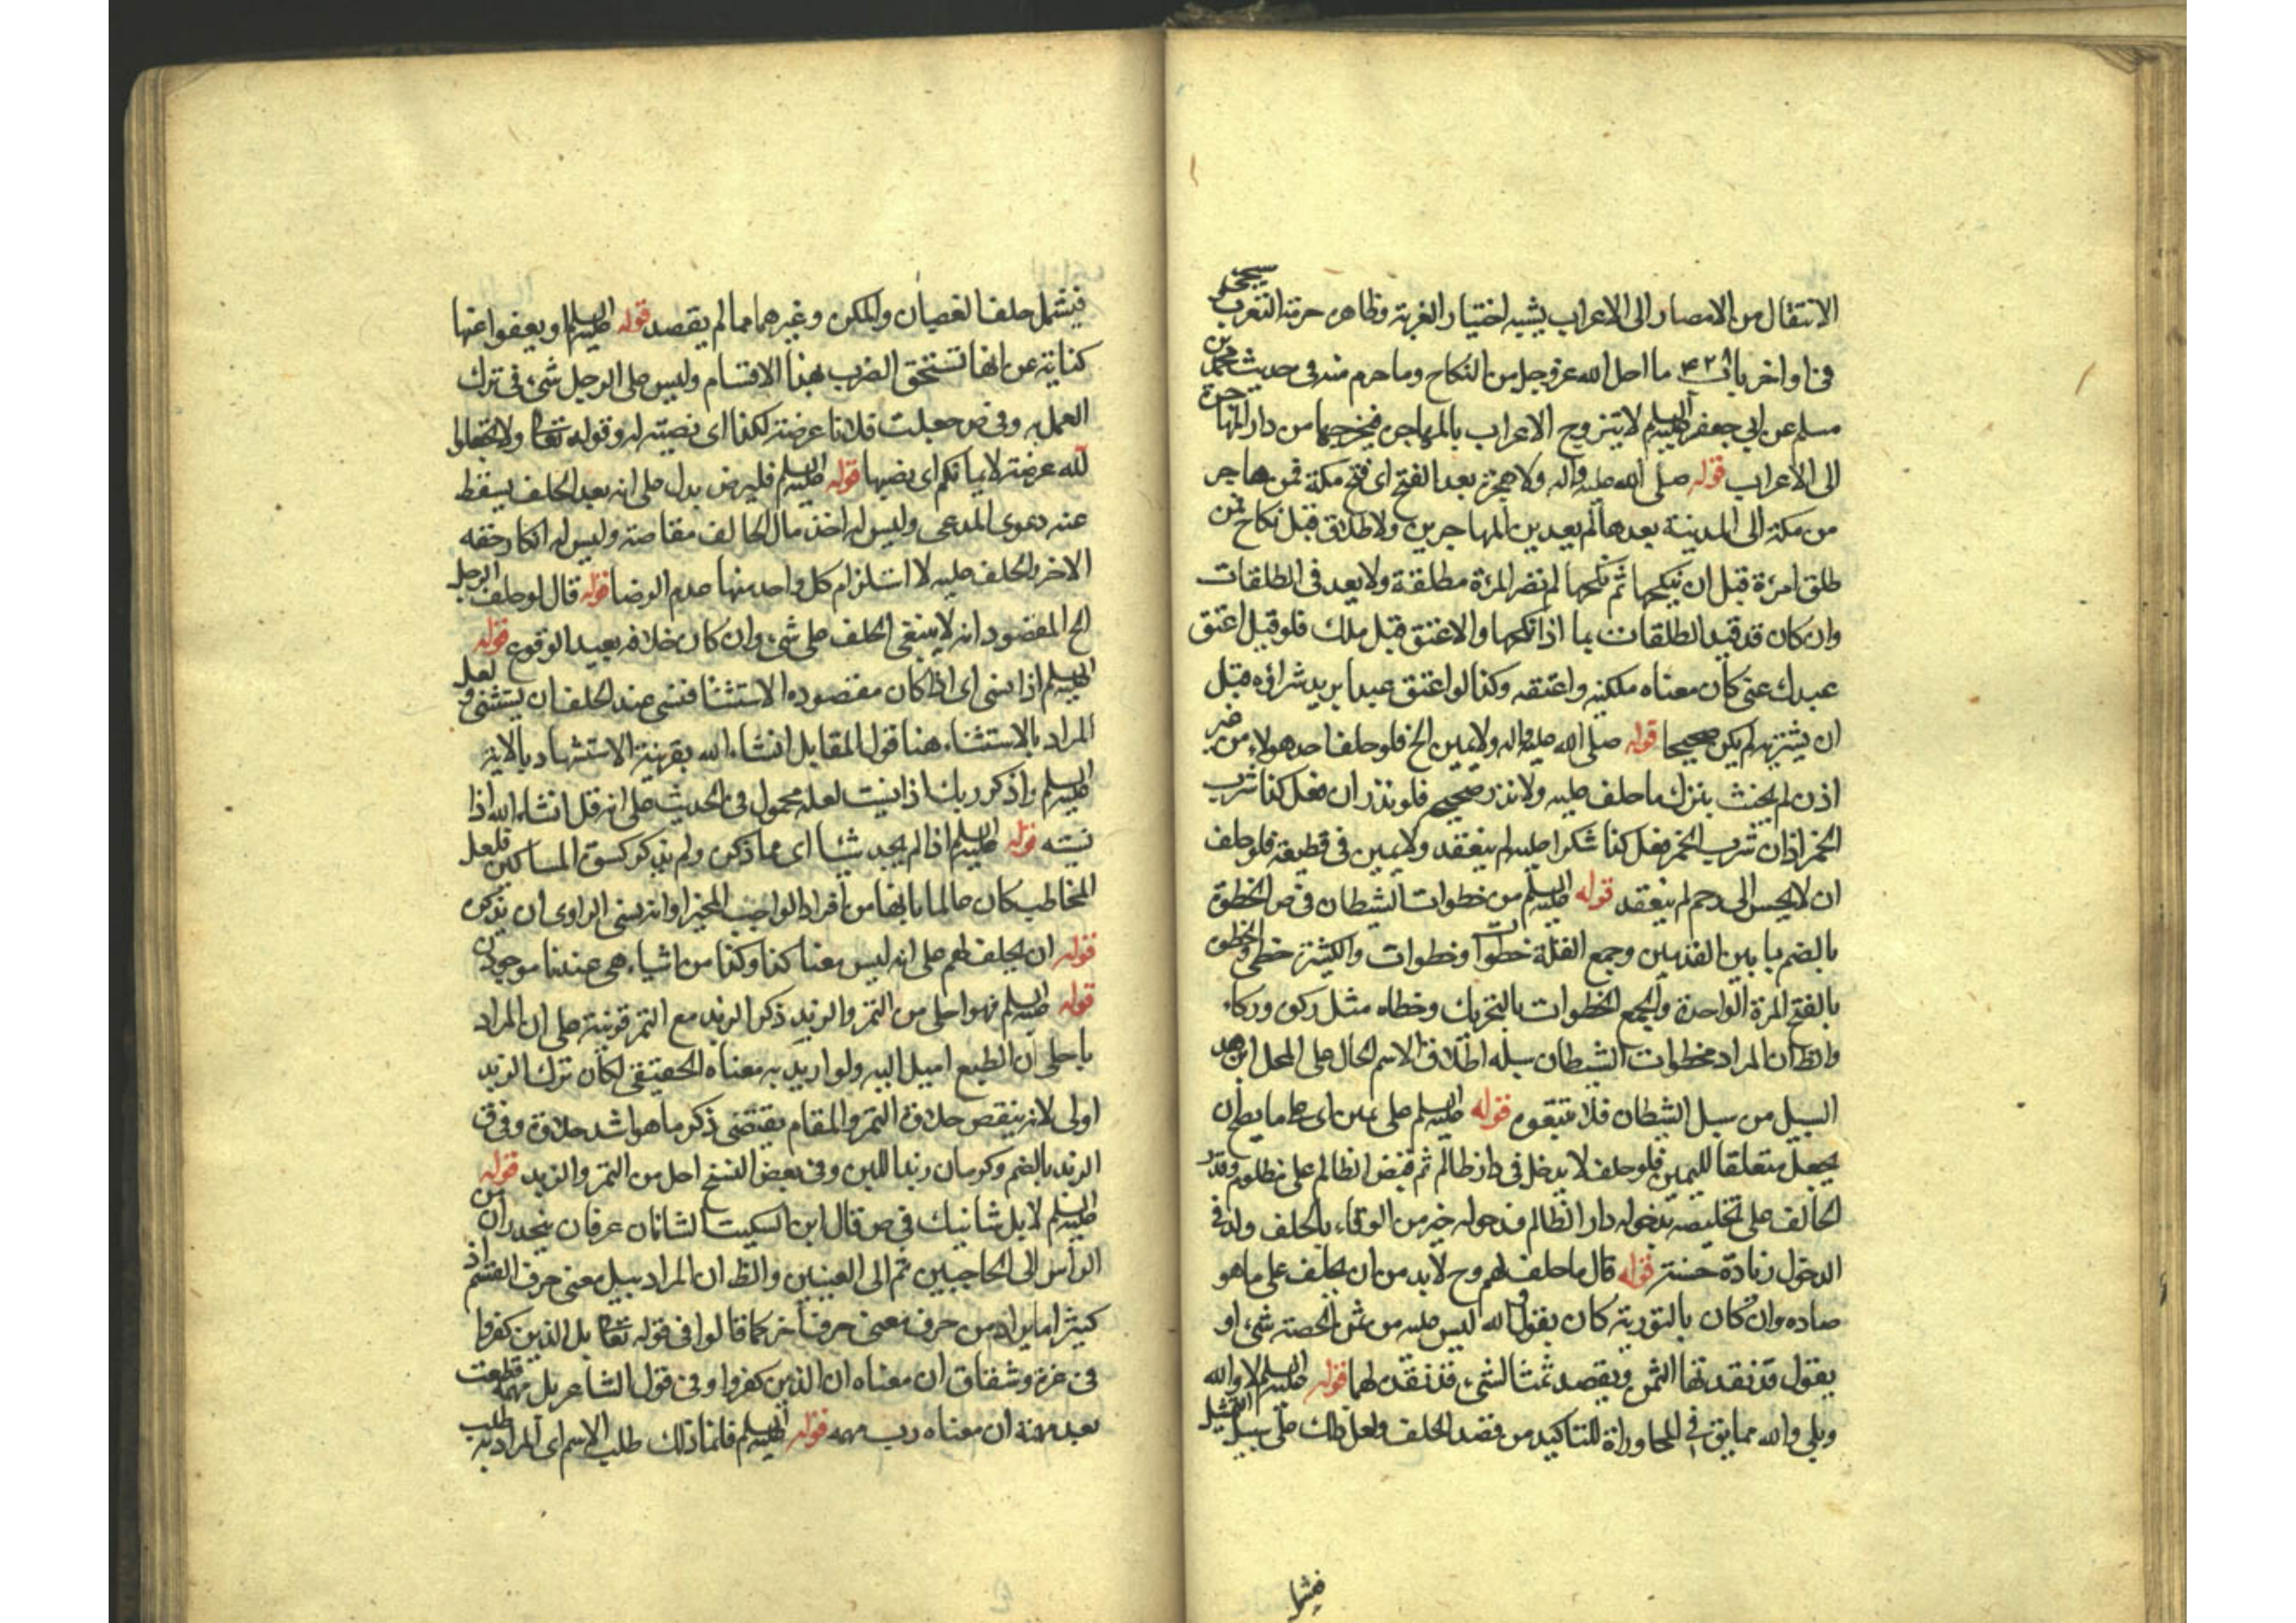 الانتقال من الامصار الى الاعراب يشبه اختيار الغربة وظاهر حرمة التعرب سيجئ
فى اواخر باب ٤٢٨ ما احل الله عز وجل من النكاح وما حرم منه فى حديث محمد بن
مسلم عن ابى جعفر عليه السلم لا يتزوج الاعراب بالمهاجرة فيخرجها من دار الهجرة
الى الاعراب قوله صلى الله عليه واله ولا هجرة بعد الفتح اى فتح مكة فمن هاجر
من مكة الى المدينة بعدها لم يعد من المهاجرين ولا طلاق قبل نكاح فمن
طلق امرءة قبل ان ينكحها ثم نكحها لم تضر المرءة مطلقة ولا يعد فى الطلقات
وان كان قد قيد الطلقات بما اذا نكحها والاعتق قبل ملك فلو قيل اعتق
عبدك عنى كان معناه ملكنيه واعتقه وكذا لو اعتق عبدا يريد شرائه قبل
ان يشتريه لم يكن صحيحا قوله صلى الله عليه واله ولا يمين الخ فلو حلف احد هولاء من غير
اذن لم يحنث بترك ما حلف عليه ولا نذر صحيح فلو نذر ان فعل كذا شرب
الخمر اذ ان شرب الخمر فعل كذا شكرا عليه لم ينعقد ولا يمين فى قطيعة فلو حلف
ان لا يحسن الى رحم لم ينعقد قوله عليه السلم من خطوات الشيطان فى ص الخطوة
بالضم ما بين القدمين وجمع القلة خطوات وخطوات والكثرة خطى والخطوة
بالفتح المرة الواحدة والجمع الخطوات بالتحريك وخطاء مثل ركوة وركاء
والظ ان المراد بخطوات الشيطان سبله اطلاق الاسم الحال على المحل اى هذا
السبيل من سبل الشيطان فلا تتبعوه قوله عليه السلم على يمين اى على ما يصح ان
يجعل متعلقا لليمين فلو حلف لا يدخل فى دار ظالم ثم قبض الظالم على مظلوم وقدر
الحالف على تخليصه بدخوله دار الظالم فدخوله خير من الوفاء بالحلف وله فى
الدخول زيادة حسنة قوله قال ما حلف لهم وح لا بد من ان يحلف على ما هو
صادق وان كان بالتورية كان يقول والله ليس عليه من ثمن الحصة شئ او
يقول قد نقدتها الثمن ويقصد ثمنا لشئ قد نقده لهما قوله عليه السلم لا والله
وبلى والله مما يق فى المحاوراة للتاكيد من قصد الحلف ولعل ذلك على سبيل التمثيل
فيشمل
فيشمل حلف الغضبان والمكره وغيرهما مما لم يقصد قوله عليه السلم او يعفوا عنها
كناية عن انها تستحق الضرب بهذا الاقسام وليس على الرجل شئ فى ترك
العمل به وفى ص جعلت فلانا عرضة لكذا اى نصبته له وقوله تعالى ولا تجعلوا
لله عرضة لايمانكم اى نصبها قوله عليه السلم فليرض يدل على انه بعد الحلف يسقط
عنه دعوى المدعى وليس له اخذ مال الحالف مقاصة وليس له انكار حقه
الاخر بالحلف عليه لا استلزام كل واحد منها عدم الرضا قوله قال لو حلف الرجل
الخ المقصود انه لا ينبغى الحلف على شئ وان كان خلافه بعيد الوقوع قوله
عليه السلم اذا نسى اى اذا كان مقصوده الاستثناء فنسى عند الحلف ان يستثنى ولعل
المراد بالاستثناء هنا قول المقابل انشاء الله بقرينة الاستشهاد بالاية
عليه السلم واذكر ربك اذا نسيت لعله محمول فى الحديث على انه قل انشاء الله اذا
نسيته قوله عليه السلم اذا لم يجد شيئا اى مما ذكره ولم يذكر كسوة المساكين فلعل
المخاطب كان عالما بانها من افراد الواجب المخير او انه نسى الراوى ان يذكره
قوله ان يحلف لهم على انه ليس معنا كذا وكذا من اشياء هى عندنا موجودة
قوله عليه السلم فهو احلى من التمر والزبد ذكر الزبد مع التمر قرينة على ان المراد
باحلى ان الطبع اميل اليه ولو اريد به معناه الحقيقى لكان ترك الزبد
اولى لانه ينقص حلاوة التمر والمقام يقتضى ذكر ما هو اشد حلاوة وفى ق
الزبد بالضم وكرمان زبد اللبن وفى بعض النسخ احل من التمر والزبد قوله
عليه السلم لا بل شانيك فى ص قال ابن السكيت الشانان عرقان ينحدران من
الراس الى الحاجبين ثم الى العينين والظ ان المراد ببل معنى حرف القسم اذ
كثيرا ما يراد من حرف معنى حرف اخر كما قالوا فى قوله تعالى بل الذين كفروا
فى عزة وشقاق ان معناه ان الذين كفروا وفى قول الشاعر بل مهمه قطعت
بعد مهمه ان معناه رب مهمه قوله عليه السلم فانما ذلك طلب الاسم اى المراد به طلب